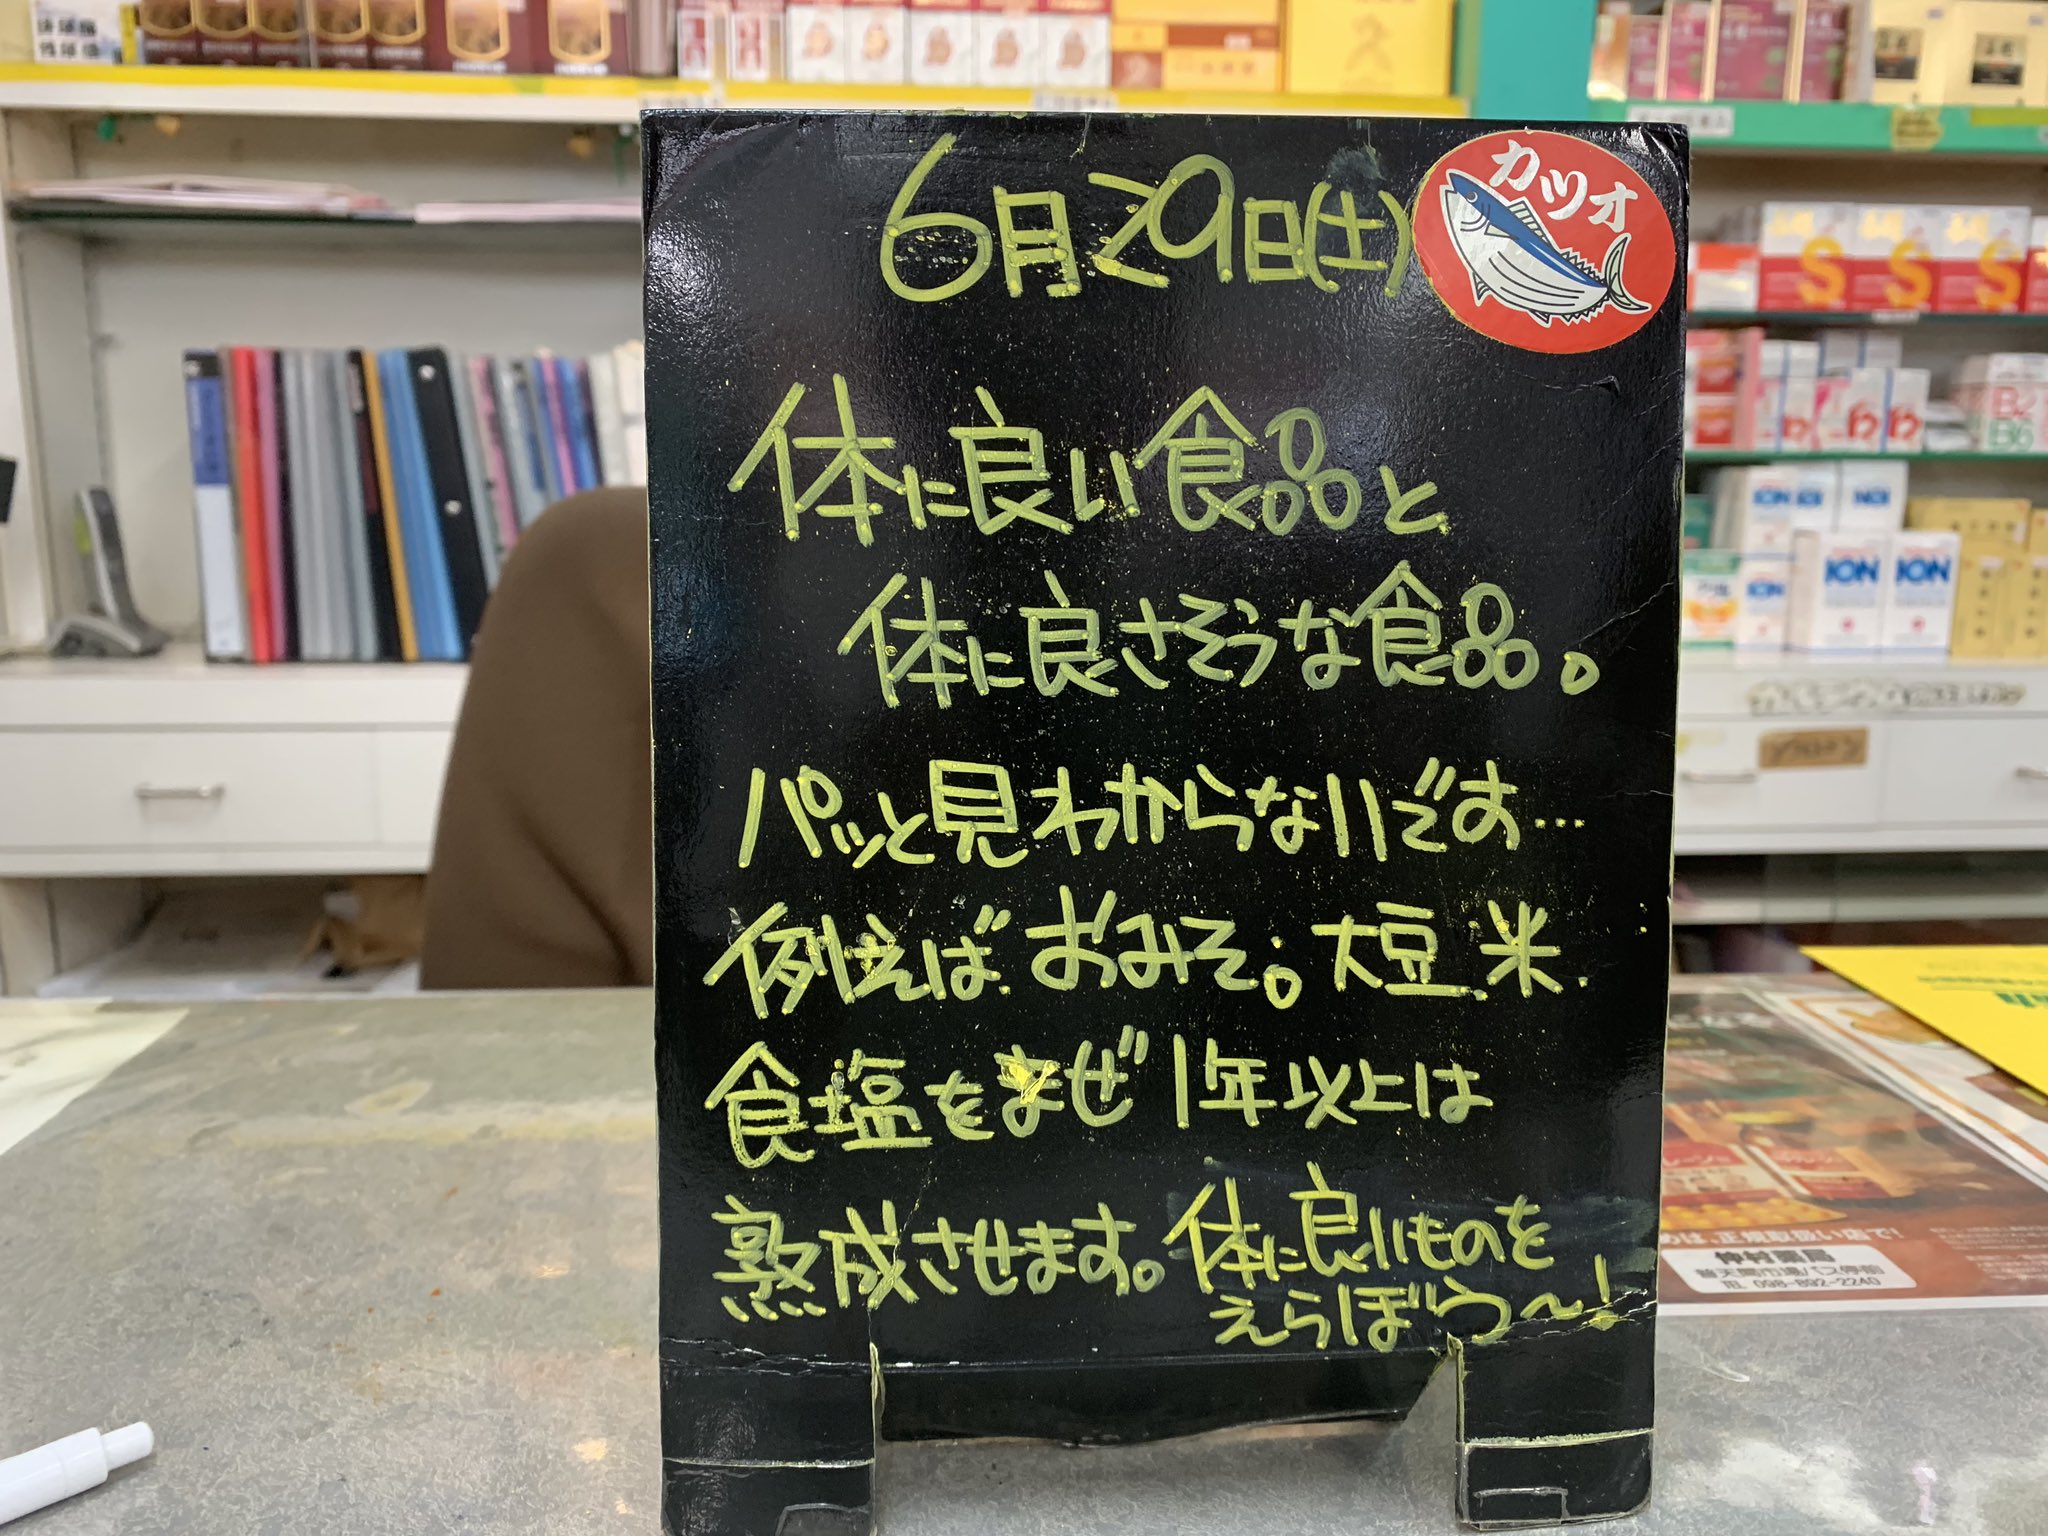 6月29日(土)
カツオ
体に良い食品と
体に良さそうな食品。
パッと見わからないです…
例えば、おみそ。大豆、米、
食塩をまぜ1年以上は
熟成させます。体に良いものを
えらぼう〜!
S
S
S
B2
B6
ION
ION
ION
ION
ION
は、正規取扱い店で!
仲村薬局
TEL 098-892-2240